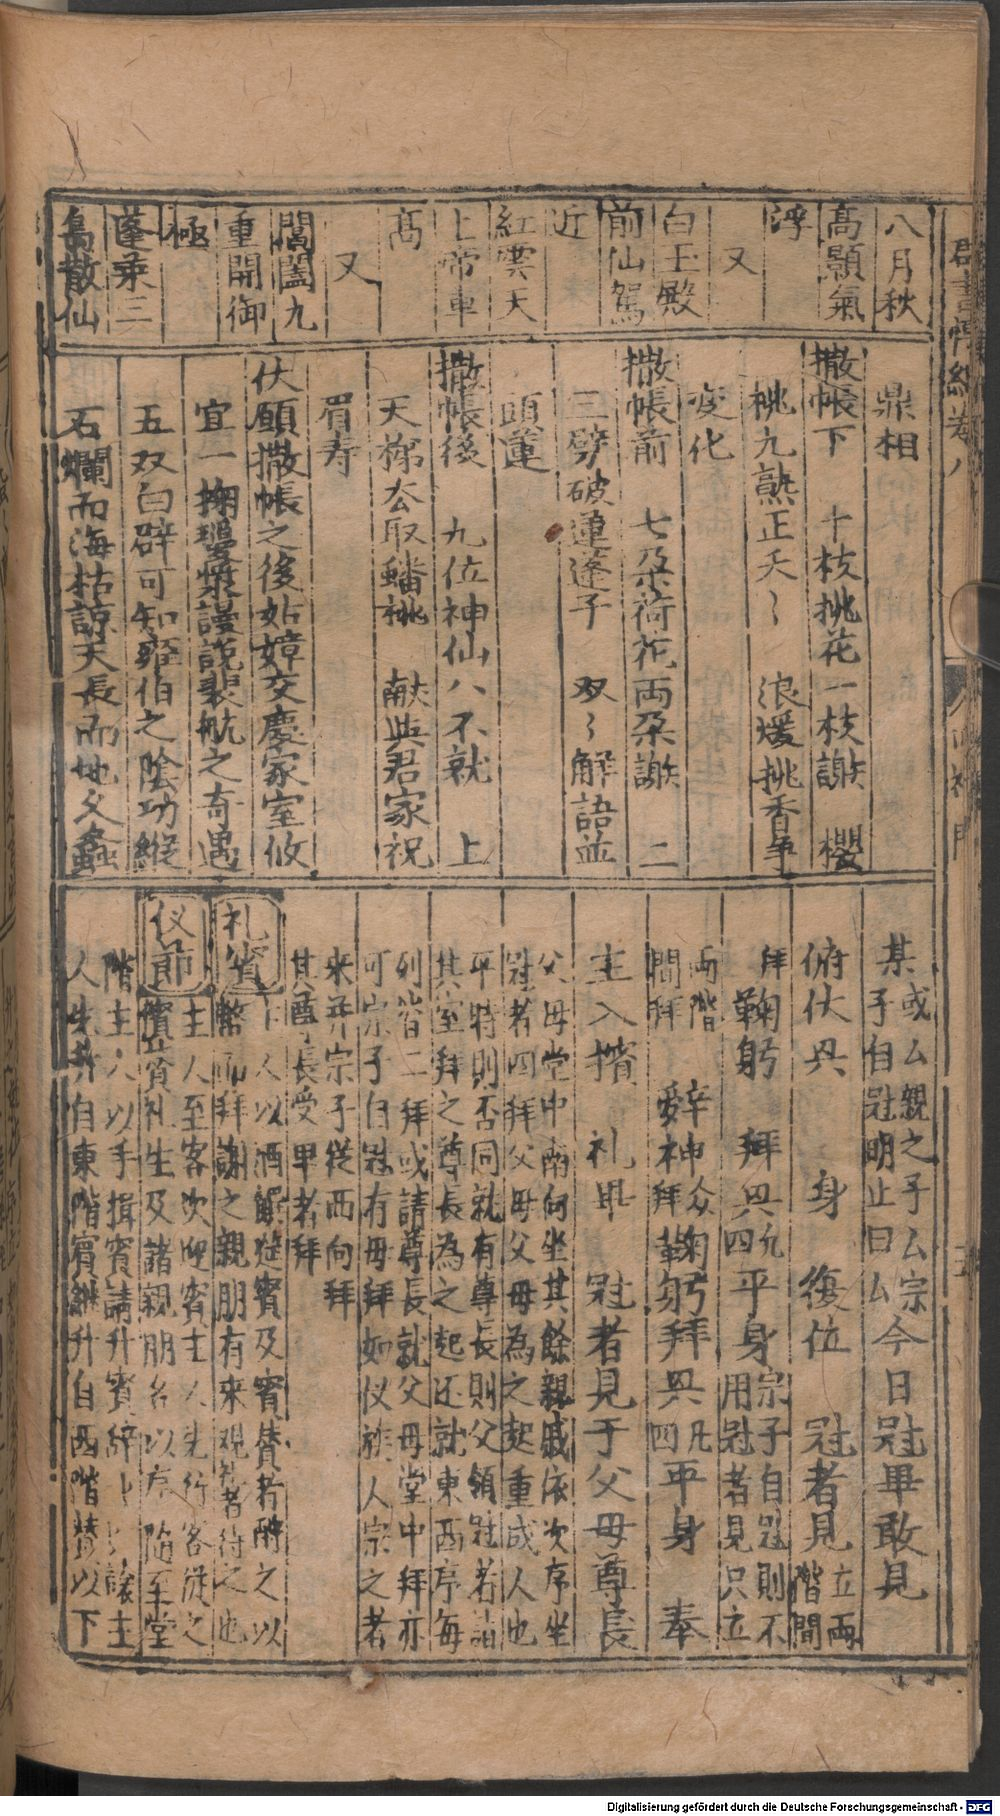 八月秋
高顥氣
浮
又
白玉殿
前仙駕
近
紅雲天
上帝車
高
又
閶闔九
重開御
極
蓬萊三
島散仙
鼎相
撒帳下 十枝桃花一枝謝 櫻
桃九熟正夭〻 浪煖桃香爭
变化
撒帳前 七朶荷花両朶謝 二
三劈破蓮蓬子 双〻解語並
頭蓮
撒帳後 九位神仙八不就 上
天梯去取蟠桃 献與君家祝
眉寿
伏願撒帳之後姑嫜交慶家室攸
宜一掬瓊漿謾說裴航之奇遇
五双白璧可知雍伯之陰功縱
石爛而海枯諒天長而地久螽
某或厶親之子厶宗子自冠眀止曰厶今日冠畢敢見
俯伏興 身 復位 冠者見立兩階間
拜 鞠躬 拜興四平身宗子自冠則不用冠者見只立
兩階間拜 辭神众拜鞠躬拜興凡四平身 奉
主入擯 礼畢 冠者見于父母尊長
父母堂中南向坐其餘親戚依次序坐
冠者四拜父母父母為之起重成人也
平特則否同就有尊長則父領冠者詣
其室拜之尊長為之起还就東西序每
列皆二拜或請尊長就父母堂中拜亦
可宗子自冠有母拜如仪族人宗之者
來并宗子從西向拜
其尊長受卑者拜
礼賓 主人以酒饌延賓及賓賛者酧之以
幣而拜謝之親朋有來观礼者待之也
仪節 主人至客次迎賓主人先行客從之
賓賛礼生及諸親朋各以序随至堂
階主人以手揖賓請升賓辭 主
人先升自東階賓継升自西階賛以下